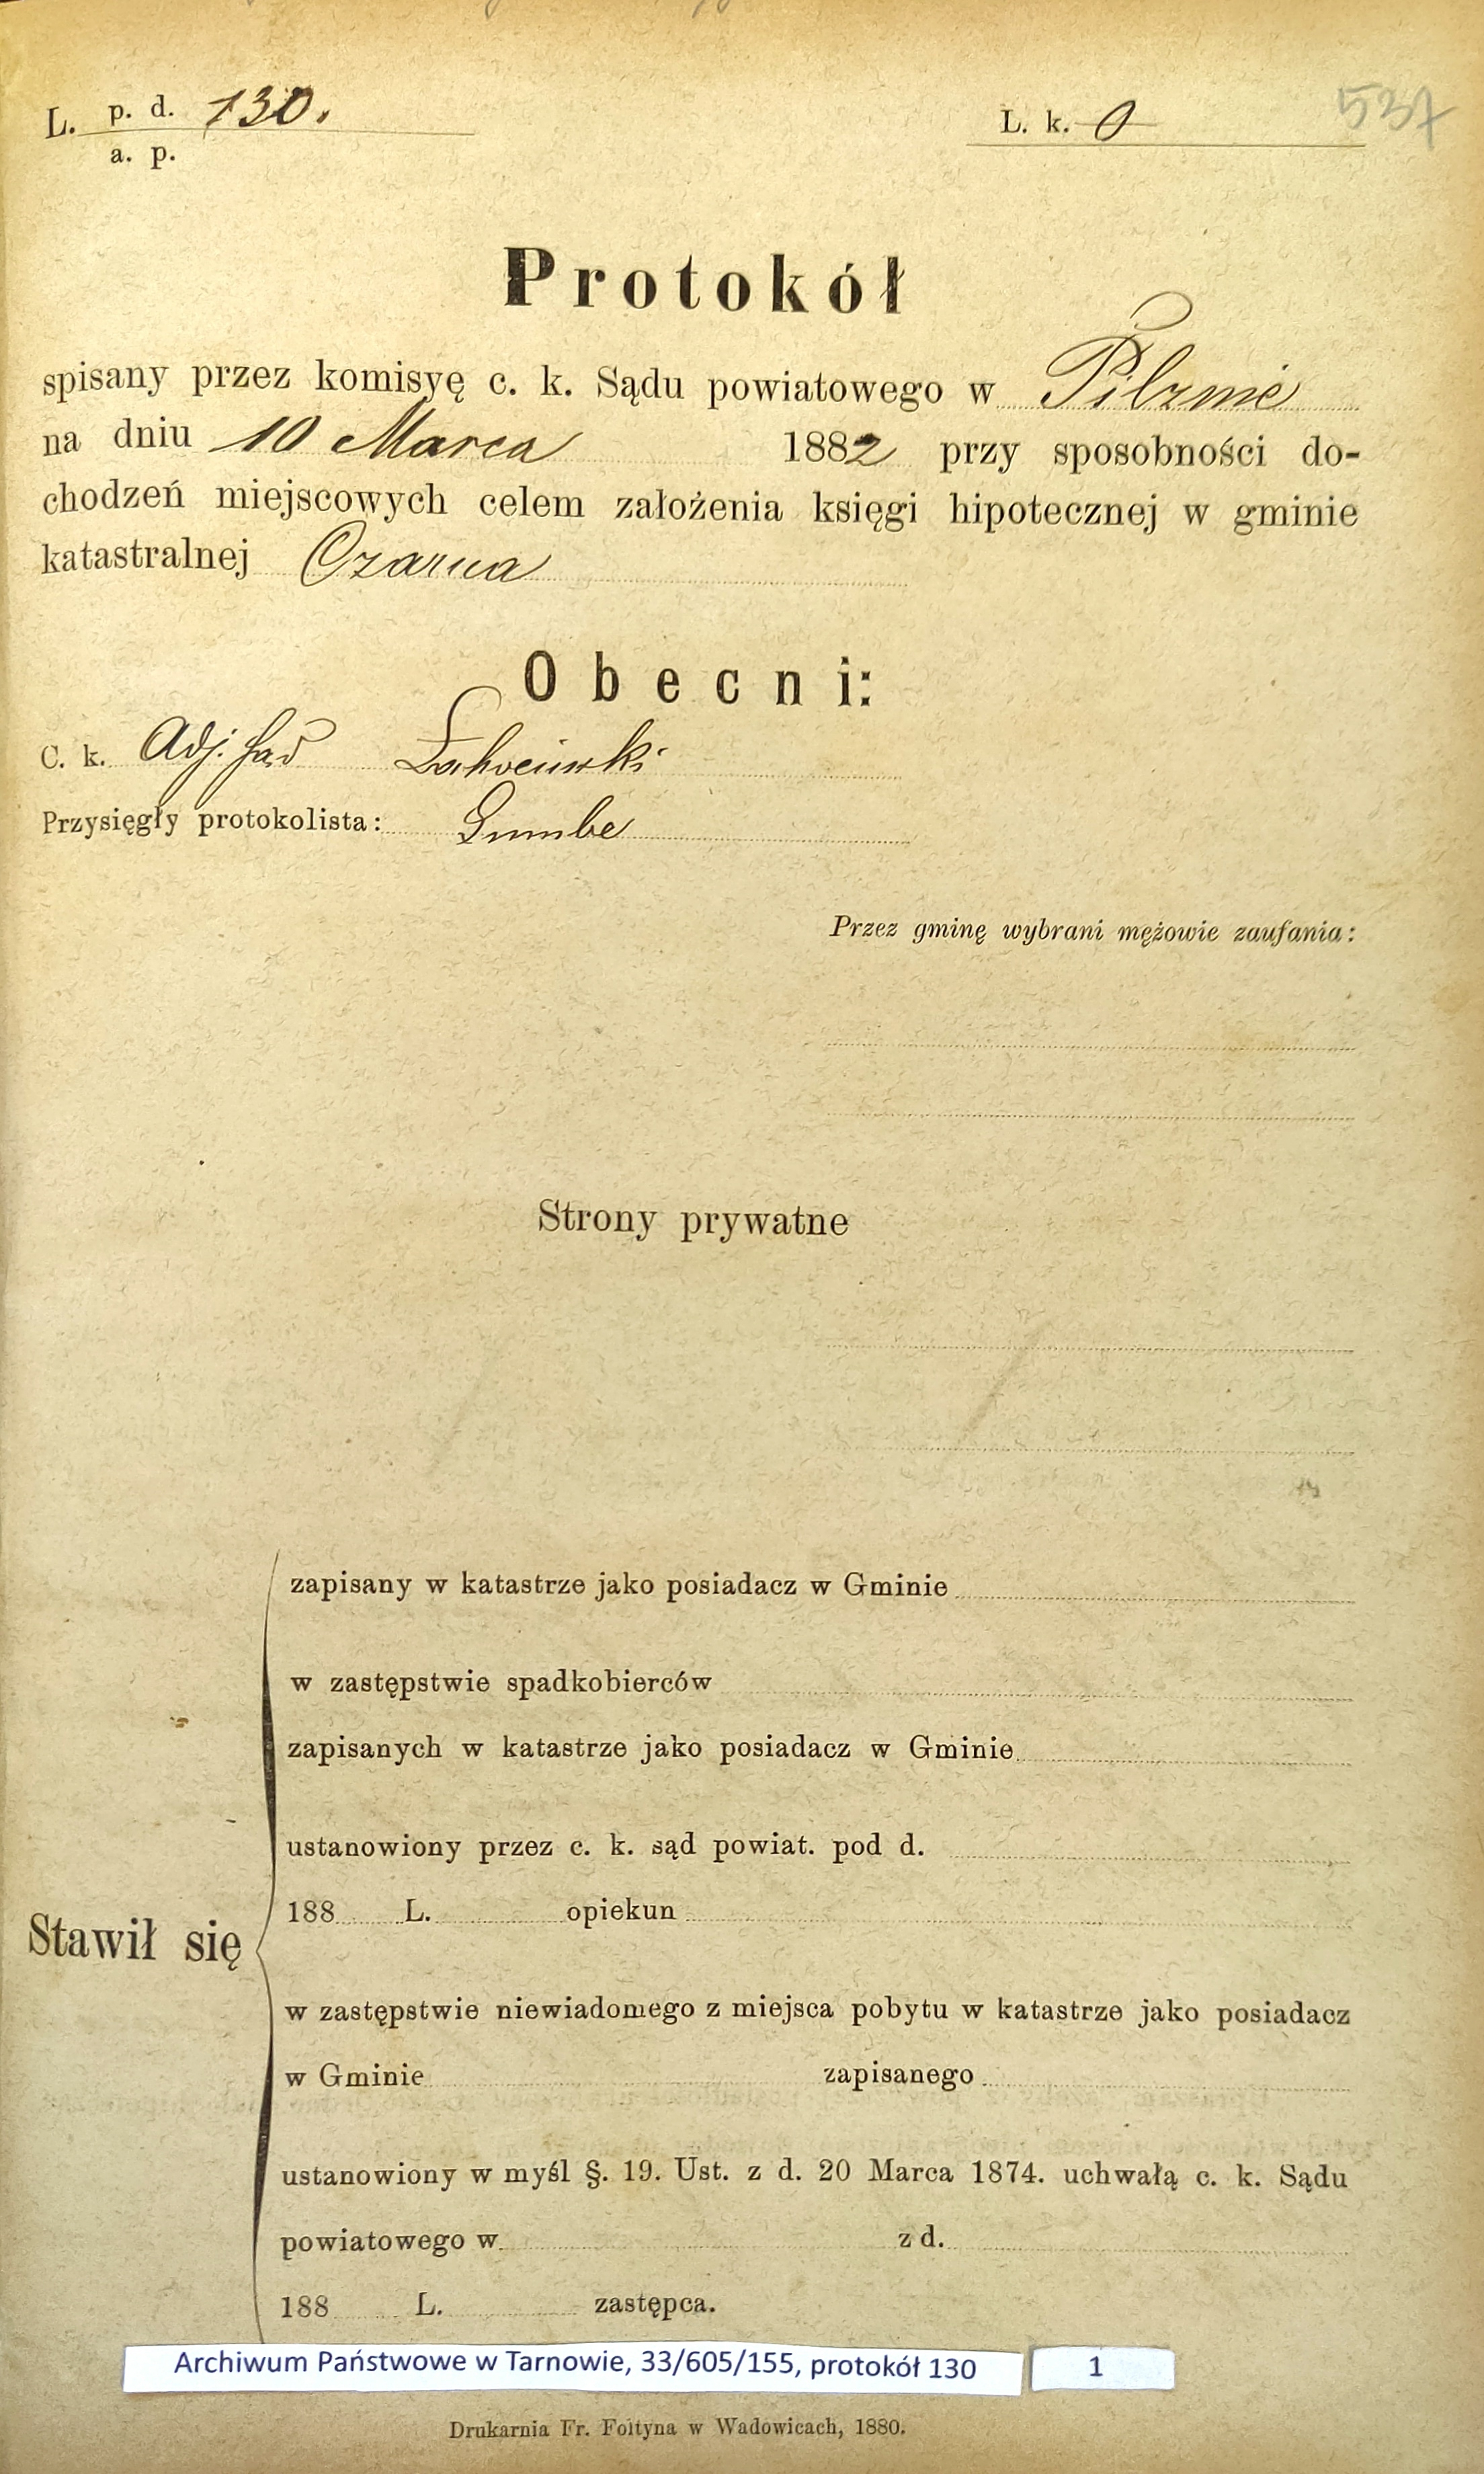 L. p. d. 130.
a. p.
L. k. 0
537
Protokół
spisany przez komisyę c. k. Sądu powiatowego w Pilznie
na dniu 10 Marca 1882 przy sposobności do-
chodzeń miejscowych celem założenia księgi hipotecznej w gminie
katastralnej Czarna
Obecni:
C. k. Adj. sąd
Przysięgły protokolista:
Przez gminę wybrani mężowie zaufania:
Strony prywatne
zapisany w katastrze jako posiadacz w Gminie
w zastępstwie spadkobierców
zapisanych w katastrze jako posiadacz w Gminie
ustanowiony przez c. k. sąd powiat. pod d.
188 L. opiekun
Stawił się
w zastępstwie niewiadomego z miejsca pobytu w katastrze jako posiadacz
w Gminie zapisanego
ustanowiony w myśl §. 19. Ust. z d. 20 Marca 1874. uchwałą c. k. Sądu
powiatowego w z d.
188 L. zastępca.
Archiwum Państwowe w Tarnowie, 33/605/155, protokół 130
1
Drukarnia Fr. Foltyna w Wadowicach, 1880.